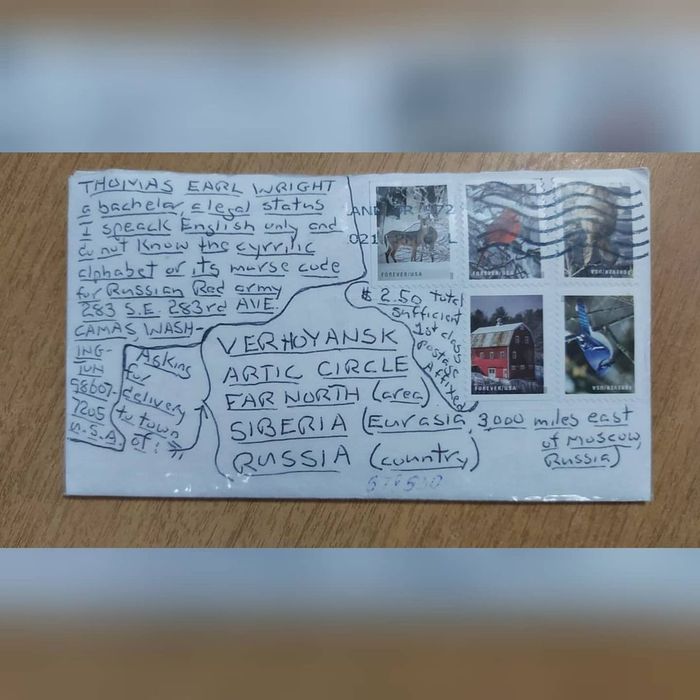 THOMAS EARL WRIGHT
a bachelor, a legal status
I speack English only and
do not know the cyrrilic
alphabet or its morse code
for Russian Red army
283 S.E. 283rd AVE.
CAMAS WASH-
ING-
TON
98607-
7205
U.S.A.
Asking
for
delivery
to town
of:
VERHOYANSK
ARTIC CIRCLE
FAR NORTH (area)
SIBERIA (Eurasia, 3,000 miles east
of Moscow,
RUSSIA (country)
Russia)
$2.50 total
sufficient
1st class
postage
Affixed
FOREVER/USA
FOREVER/USA
FOREVER/USA
FOREVER/USA
FOREVER/USA